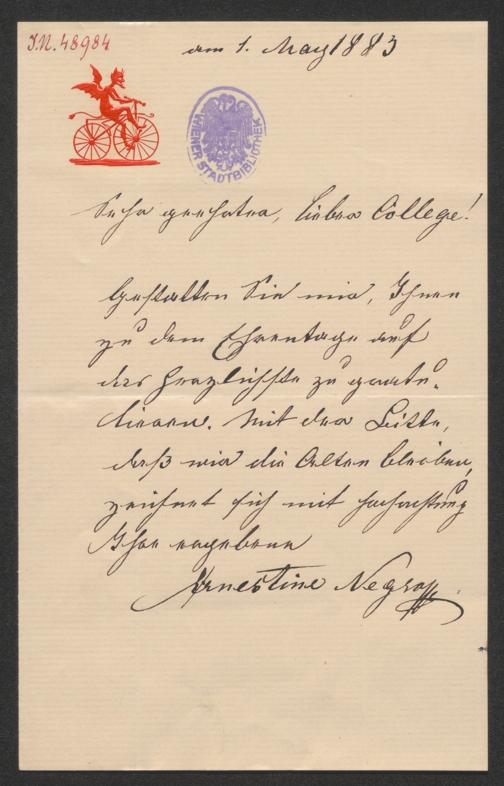 J.N. 48984
am 1. May 1883
WIENER STADTBIBLIOTHEK
Sehr geehrter, lieber College!
Gestatten Sie mir, Ihnen
zu dem Ehrentage auf
das herzlichste zu gratu-
lieren. Mit der Bitte,
daß wir die Alten bleiben,
zeichnet sich mit Hochachtung
Ihre ergebene
Ernestine Negro